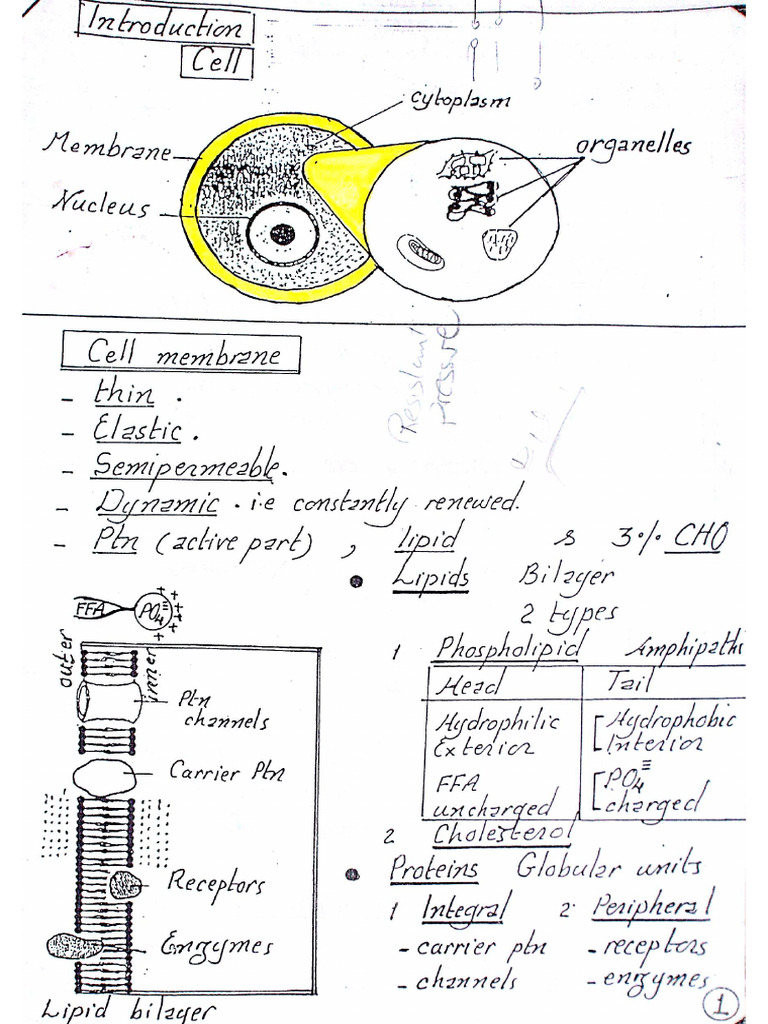 Introduction
Cell
cytoplasm
Membrane
organelles
Nucleus
Resistant
pressure
Cell membrane
- thin .
- Elastic .
- Semipermeable.
- Dynamic . i.e constantly renewed.
- Ptn (active part) , lipid s 3% CHO
• Lipids Bilayer
2 types
FFA PO4≡
+ + + + +
outer
inner
Ptn
channels
Carrier Ptn
Receptors
Enzymes
Lipid bilayer
1 Phospholipid Amphipathi
Head Tail
Hydrophilic Hydrophobic
Exterior Interior
FFA PO4≡
uncharged charged
2 Cholesterol
• Proteins Globular units
1 Integral 2 Peripheral
- carrier ptn - receptors
- channels - enzymes
1